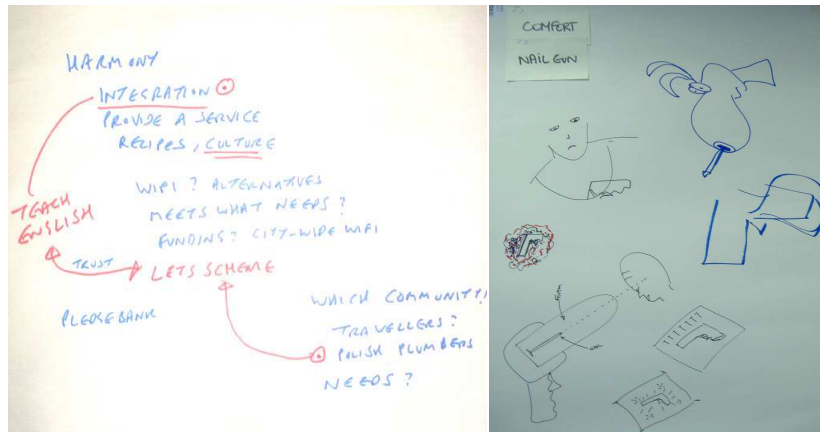 HARMONY
INTEGRATION
PROVIDE A SERVICE
RECIPES, CULTURE
WIFI? ALTERNATIVES
MEETS WHAT NEEDS?
FUNDING? CITY-WIDE WIFI
TEACH
ENGLISH
TRUST
LETS SCHEME
PLEDGEBANK
WHICH COMMUNITY?
TRAVELLERS?
POLISH PLUMBERS
NEEDS?
COMFORT
NAIL GUN